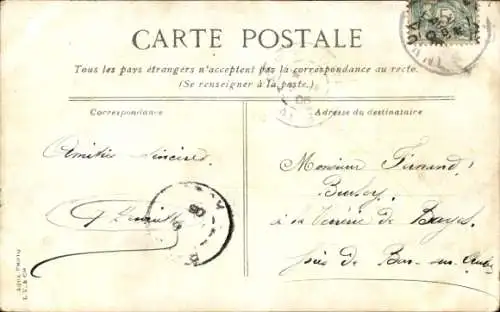 CARTE POSTALE
Tous les pays étrangers n'acceptent pas la correspondance au recto.
(Se renseigner à la poste.)
Correspondance
Adresse du destinataire
Amitiés sincères.
Monsieur Fernand
à la Verrerie de Bayel
près de Bar-sur-Aube